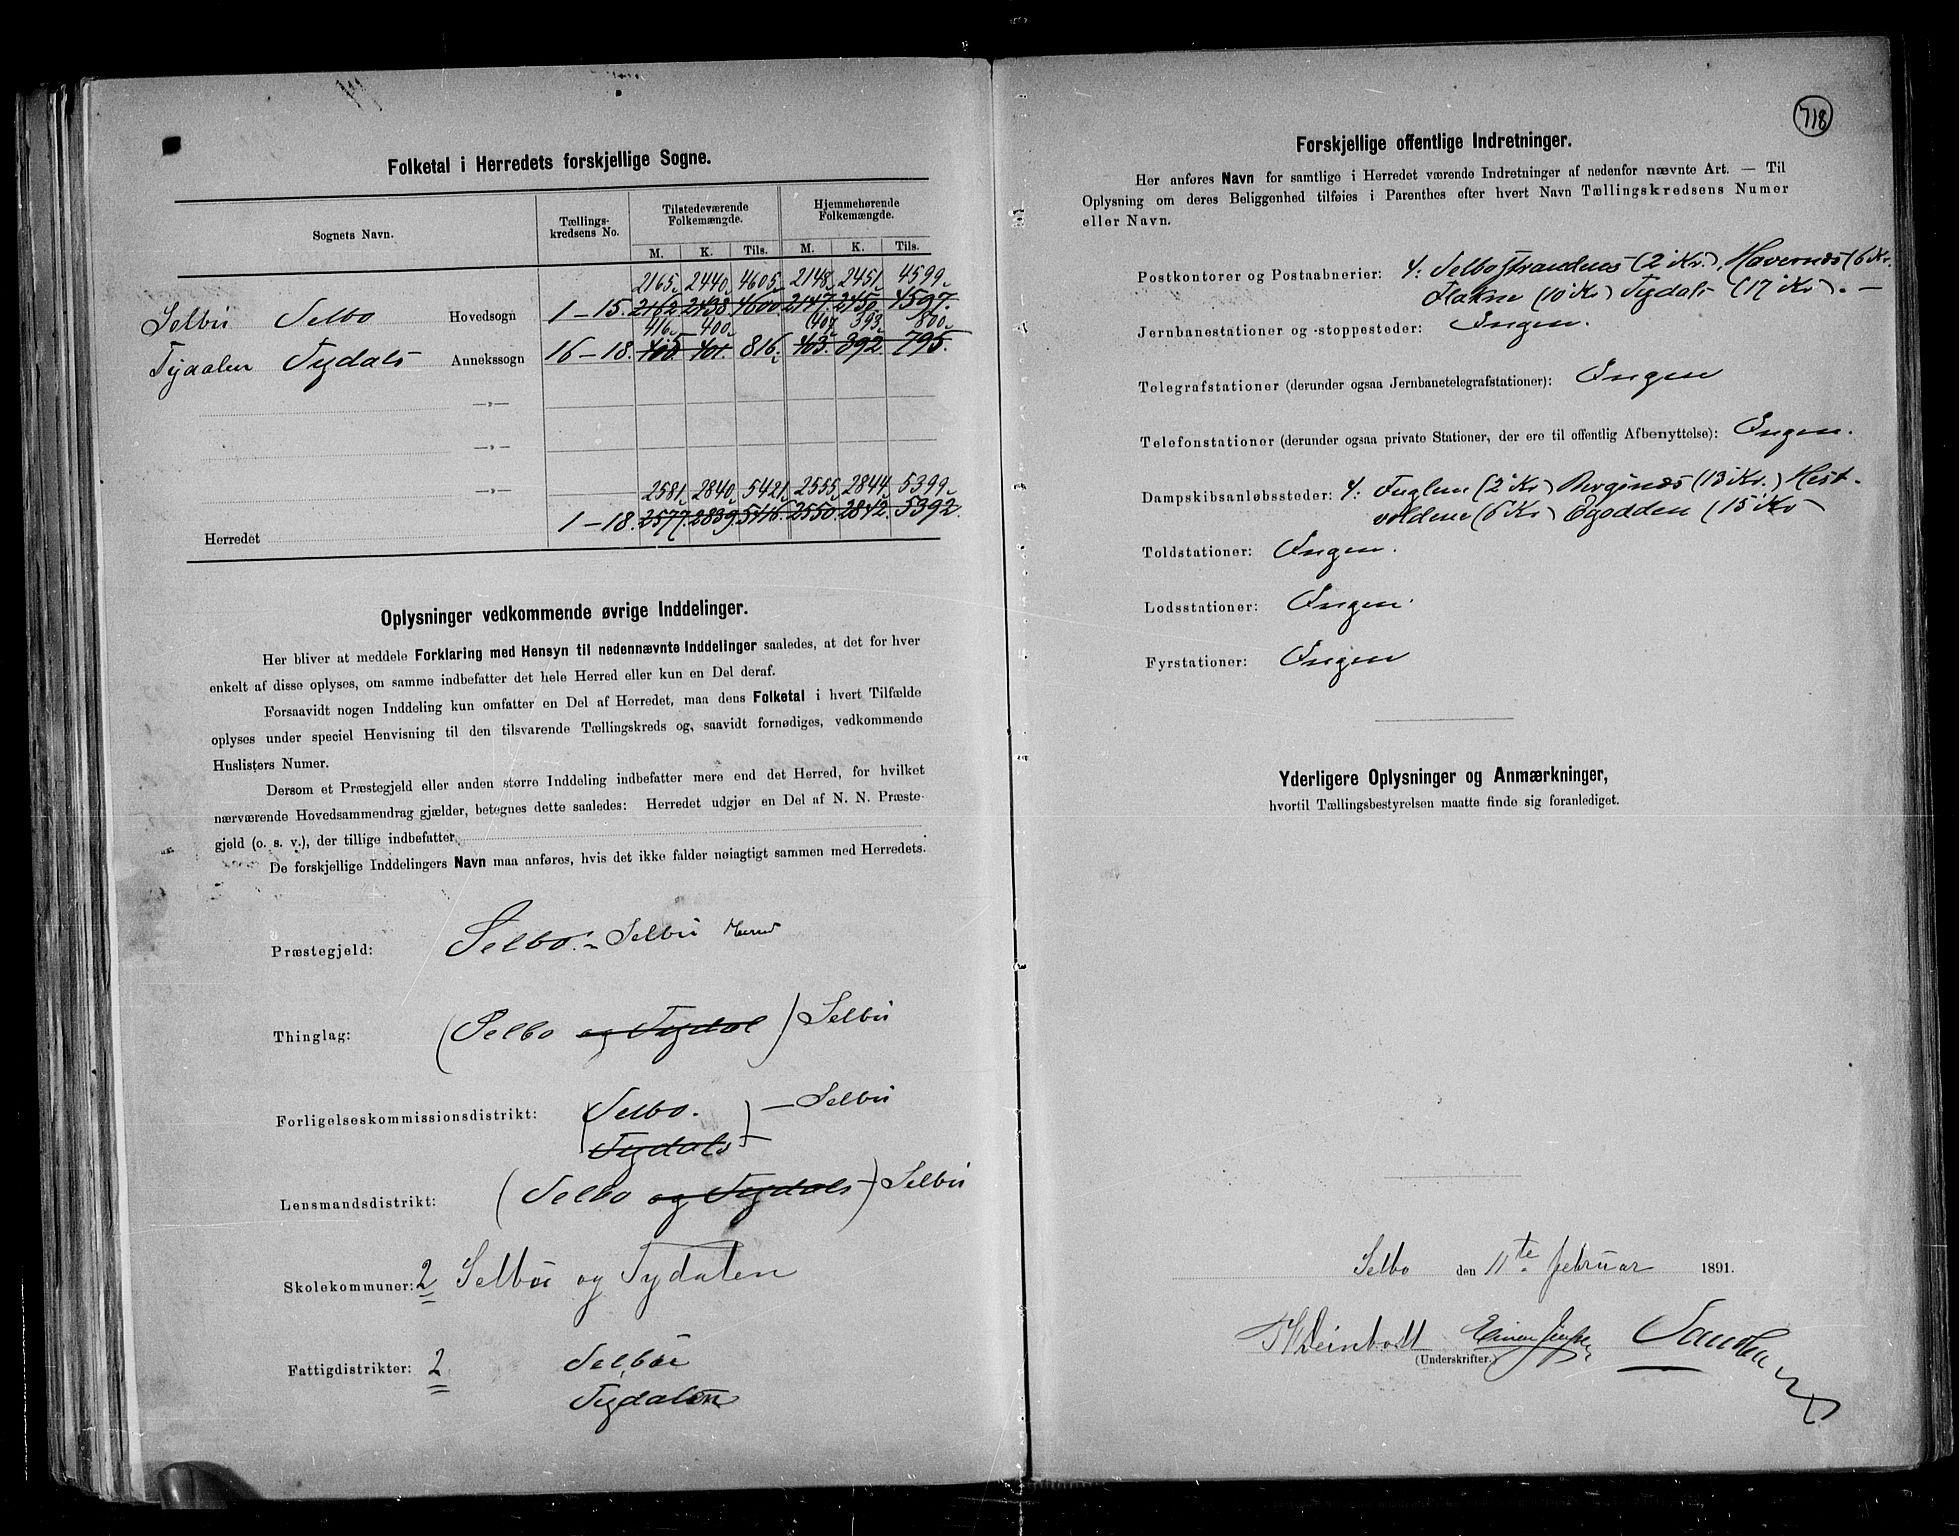 Folketal i Herredets forskjellige Sogne.
Sognets Navn. Tællings-kredsens No. Tilstedeværende Folkemængde. Hjemmehørende Folkemængde.
M. K. Tils. M. K. Tils.
2165 2440 4605 2148 2451 4599
Selbu Selbo Hovedsogn 1–15. 2162 2438 4600 2147 2450 4597.
416 – 400 407 393 800
Tydalen Tydals Annekssogn 16–18. 401. 816 403. 392 795.
—„—
—„—
—„— 2581 2840 5421 2555 2844 5399
Herredet 1–18. 2577. 2839 5416 2550. 2842. 5392.
Oplysninger vedkommende øvrige Inddelinger.
Her bliver at meddele Forklaring med Hensyn til nedennævnte Inddelinger saaledes, at det for hver
enkelt af disse oplyses, om samme indbefatter det hele Herred eller kun en Del deraf.
Forsaavidt nogen Inddeling kun omfatter en Del af Herredet, maa dens Folketal i hvert Tilfælde
oplyses under speciel Henvisning til den tilsvarende Tællingskreds og, saavidt fornødiges, vedkommende
Huslisters Numer.
Dersom et Præstegjeld eller anden større Inddeling indbefatter mere end det Herred, for hvilket
nærværende Hovedsammendrag gjælder, betegnes dette saaledes: Herredet udgjør en Del af N. N. Præste-
gjeld (o. s. v.), der tillige indbefatter
De forskjellige Inddelingers Navn maa anføres, hvis det ikke falder nøiagtigt sammen med Herredets.
Præstegjeld: Selbo. – Selbu Herred
Thinglag: (Selbo og Tydal) Selbu
Forligelseskommissionsdistrikt: (Selbo. – Selbu
Tydals)
Lensmandsdistrikt: (Selbo og Tydals) Selbu
Skolekommuner: 2 Selbu og Tydalen
Fattigdistrikter: 2 Selbu
Tydalen
718
Forskjellige offentlige Indretninger.
Her anføres Navn for samtlige i Herredet værende Indretninger af nedenfor nævnte Art. — Til
Oplysning om deres Beliggenhed tilføies i Parenthes efter hvert Navn Tællingskredsens Numer
eller Navn.
Postkontorer og Postaabnerier: 4: Selbostrandens (2 Kr.), Havernæs (6 Kr.
Flakne (10 Kr) Tydals (17 Kr). –
Jernbanestationer og -stoppesteder: Ingen.
Telegrafstationer (derunder ogsaa Jernbanetelegrafstationer): Ingen
Telefonstationer (derunder ogsaa private Stationer, der ere til offentlig Afbenyttelse): Ingen.
Dampskibsanløbssteder: 4: Fuglem (2 Kr) Berginæs (13 Kr.) Hest-
voldene (6 Kr) Egodden (15 Kr)
Toldstationer: Ingen.
Lodsstationer: Ingen.
Fyrstationer: Ingen
Yderligere Oplysninger og Anmærkninger,
hvortil Tællingsbestyrelsen maatte finde sig foranlediget.
Selbo den 11te februar 1891.
(Underskrifter.)